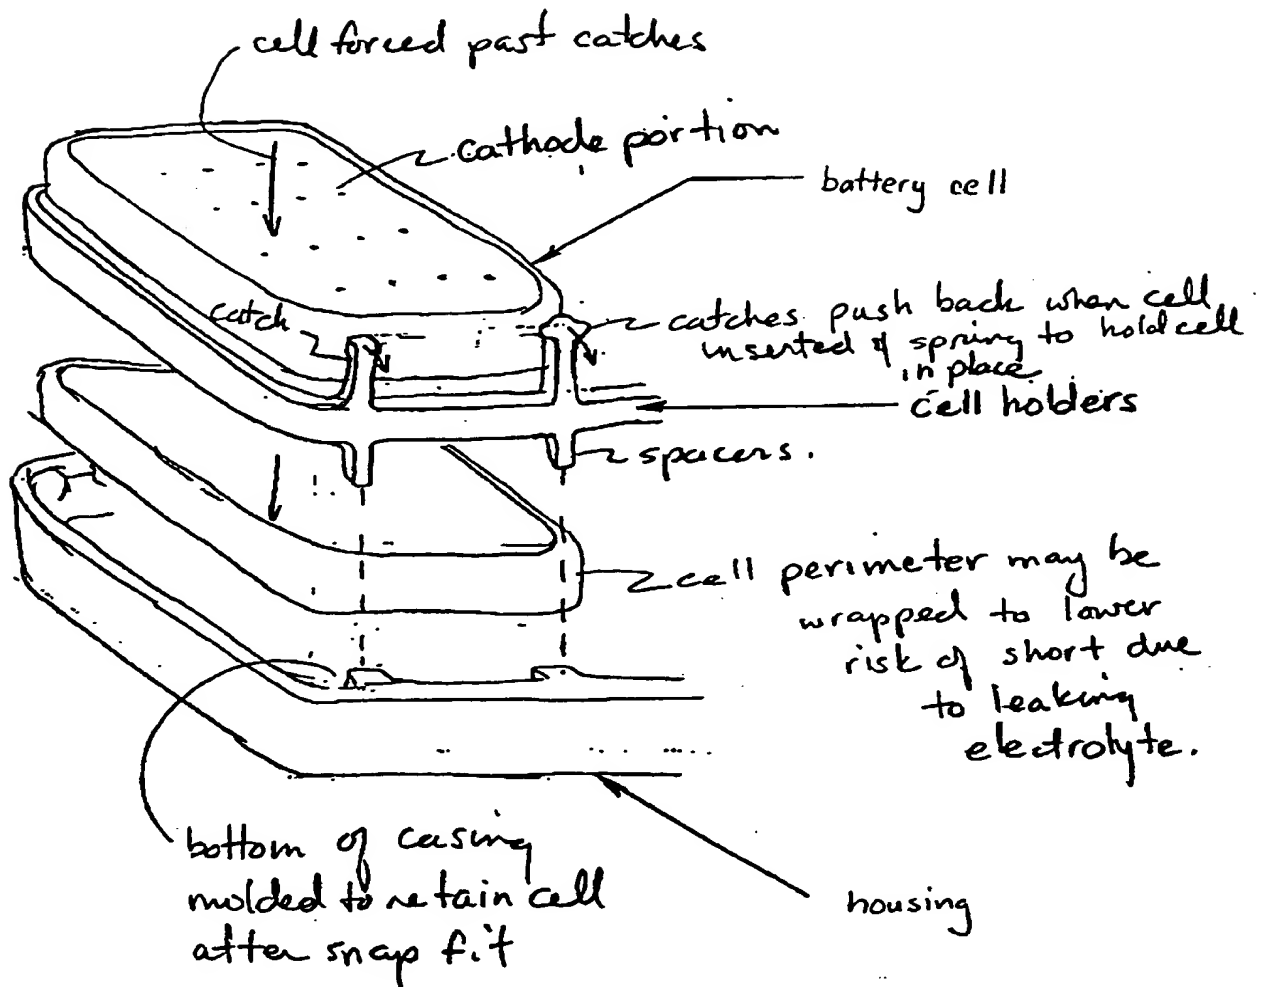 cell forced past catches
cathode portion
battery cell
catch
catches push back when cell
inserted & spring to hold cell
in place
cell holders
spacers.
cell perimeter may be
wrapped to lower
risk of short due
to leaking
electrolyte.
bottom of casing
molded to retain cell
after snap fit
housing